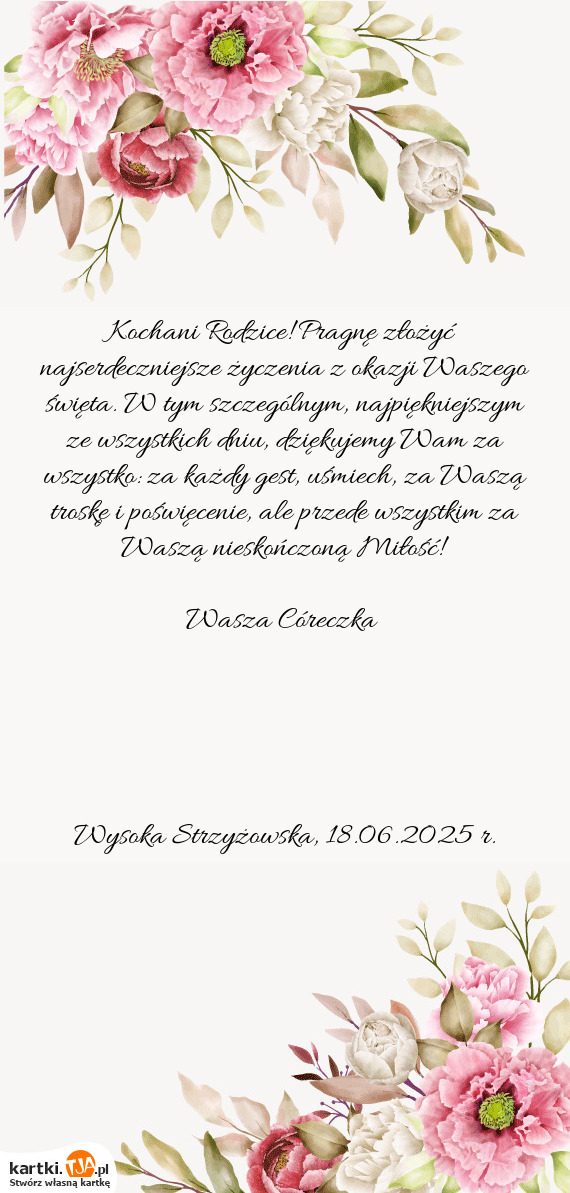 Kochani Rodzice! Pragnę złożyć
najserdeczniejsze życzenia z okazji Waszego
święta. W tym szczególnym, najpiękniejszym
ze wszystkich dniu, dziękujemy Wam za
wszystko: za każdy gest, uśmiech, za Waszą
troskę i poświęcenie, ale przede wszystkim za
Waszą nieskończoną Miłość!
Wasza Córeczka
Wysoka Strzyżowska, 18.06.2025 r.
kartki.TJA.pl
Stwórz własną kartkę